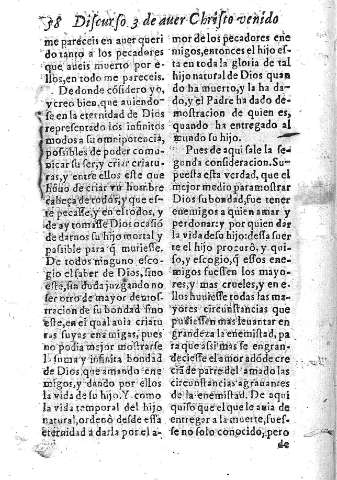 38 Discurso 3 de auer Christo venido
me pareceis en auer queri
do tanto a los pecadores
que aueis muerto por e-
llos, en todo me pareceis.
De donde cõsidero yo,
y creo bien, que auiendo-
se en la eternidad de Dios
representado los infinitos
modos a su omnipotencia,
possibles de poder comu-
nicar su ser, y criar criatu-
ras, y entre ellos este que
huuo de criar vn hombre
cabeça de todos, y que es-
te pecasse, y en el todos, y
de ay tomasse Dios ocasiõ
de darnos su hijo mortal y
passible para q̃ muriesse.
De todos ninguno esco-
gio el saber de Dios, sino
este, sin duda juzgando no
ser otro de mayor demos-
tracion de su bondad sino
este, en el qual auia criatu
ras suyas enemigas, pues
no podia mejor mostrarse
la suma y infinita bondad
de Dios, que amando ene
migos, y dando por ellos
la vida de su hijo. Y como
la vida temporal del hijo
natural, ordenò desde essa
eternidad a darla por el a-
mor de los pecadores ene
migos, entonces el hijo es-
ta en toda la gloria de tal
hijo natural de Dios quan
do ha muerto, y la ha da-
do, y el Padre ha dado de-
mostracion de quien es,
quando ha entregado al
mundo su hijo.
Pues de aqui sale la se-
gunda consideracion. Su-
puesta esta verdad, que el
mejor medio para mostrar
Dios su bondad, fue tener
enemigos a quien amar y
perdonar: y por quien dar
la vida de su hijo: dessa suer
te el hijo procurò, y qui-
so, y escogio, q̃ essos ene-
migos fuessen los mayo-
res, y mas crueles, y en e-
llos huuiesse todas las ma-
yores circunstancias que
pudiessen mas leuantar en
grandeza la enemistad, pa
ra que assi mas se engran-
deciesse el amor adõde cre
cia de parte del amado las
circunstancias agrauantes
de la enemistad. De aqui
quiso que el que le auia de
entregar a la muerte, fues-
se no solo conocido, pero
de